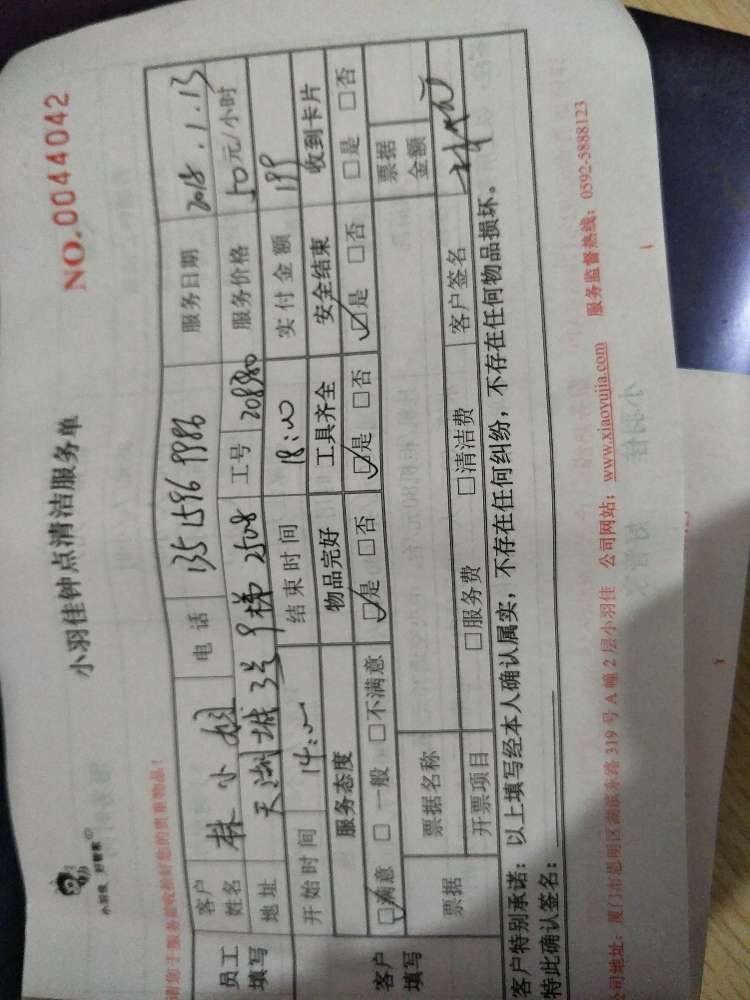 小羽佳 好管家
小羽佳钟点清洁服务单
NO.0044042
请您于服务前收拾好您的贵重物品!
员工填写
客户姓名 林小姐 电话 13515969986 服务日期 2018.1.13
地址 天湖城3号9梯2508 工号 服务价格 50元/小时
开始时间 14:00 结束时间 18:00 实付金额 199
客户填写
服务态度 物品完好 工具齐全 安全结束 收到卡片
☑满意 □一般 □不满意 ☑是 □否 ☑是 □否 ☑是 □否 □是 □否
票据 票据名称 票据金额
开票项目 □服务费 □清洁费 客户签名
客户特别承诺:以上填写经本人确认属实,不存在任何纠纷,不存在任何物品损坏。
特此确认签名:
公司地址:厦门市思明区湖滨东路319号A幢2层小羽佳 公司网站:www.xiaoyujia.com 服务监督热线:0592-5888123